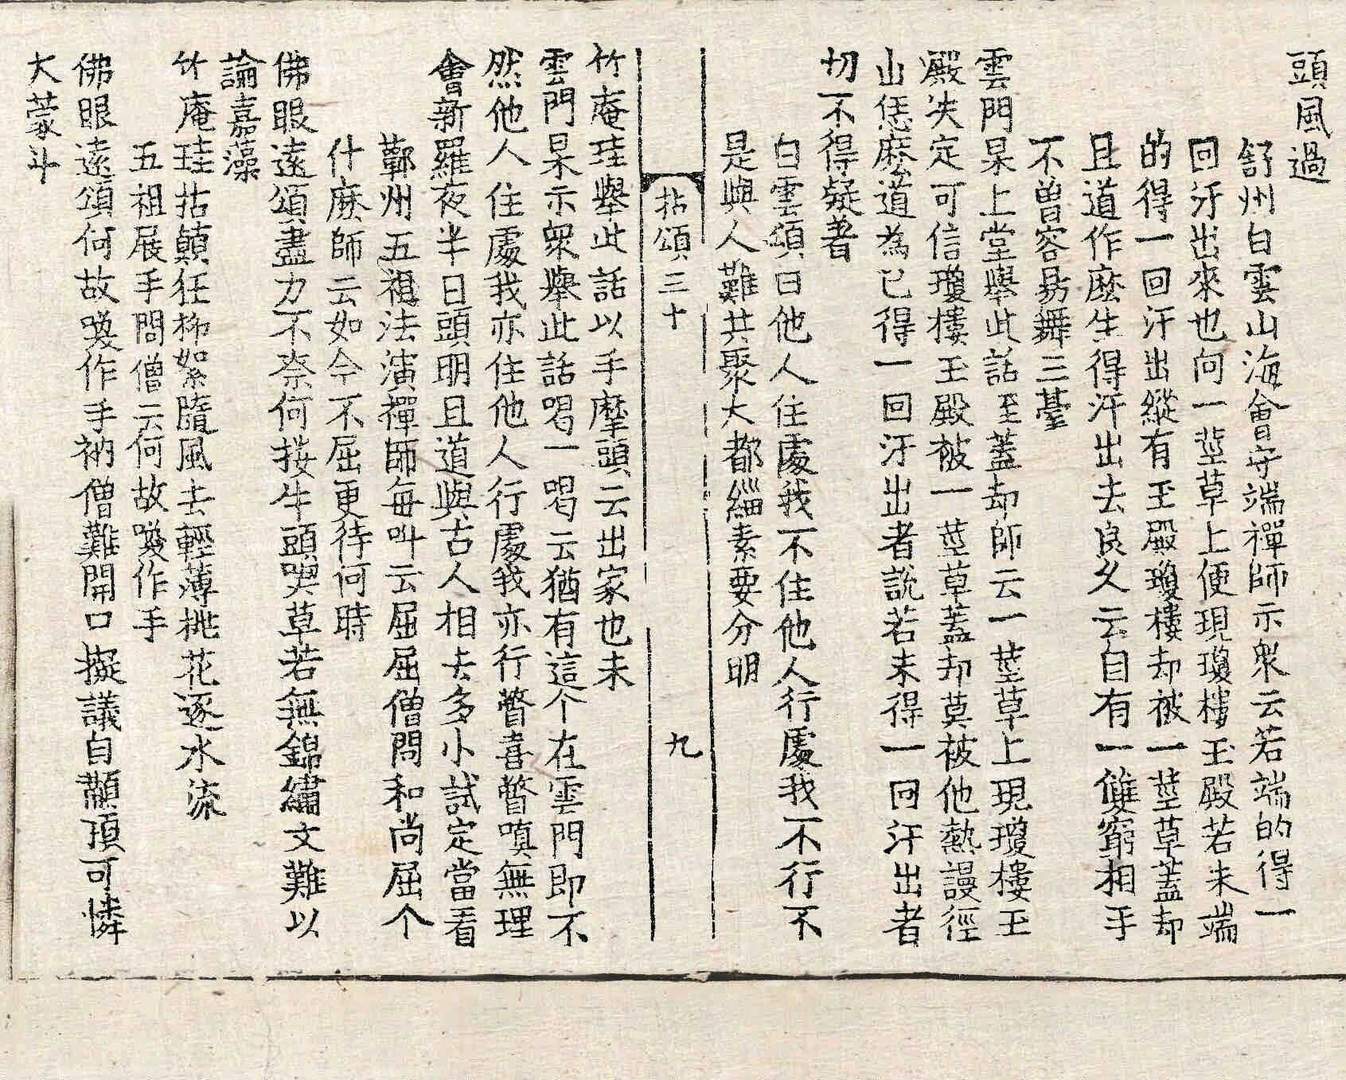 頭風過
舒州白雲山海會守端禪師示衆云若端的得一
回汗出來也向一莖草上便現瓊樓玉殿若未端
的得一回汗出縱有玉殿瓊樓却被一莖草蓋却
且道作麽生得汗出去良久云自有一雙窮相手
不曾容易舞三臺
雲門杲上堂舉此話至蓋却師云一莖草上現瓊樓玉
殿決定可信瓊樓玉殿被一莖草蓋却莫被他熱謾徑
山恁麽道為已得一回汗出者說若未得一回汗出者
切不得疑著
白雲頌曰他人住處我不住他人行處我不行不
是與人難共聚大都緇素要分明
拈頌三十 九
竹庵珪舉此話以手摩頭云出家也未
雲門杲示衆舉此話喝一喝云猶有這个在雲門即不
然他人住處我亦住他人行處我亦行瞥喜瞥嗔無理
會新羅夜半日頭明且道與古人相去多小試定當看
鄿州五祖法演禪師每叫云屈屈僧問和尚屈个
什麽師云如今不屈更待何時
佛眼遠頌盡力不奈何㧞牛頭喫草若無錦繡文難以
論嘉藻
竹庵珪拈顛狂柳絮隨風去輕薄桃花逐水流
五祖展手問僧云何故喚作手
佛眼遠頌何故喚作手衲僧難開口擬議自顢頇可憐
大蒙斗